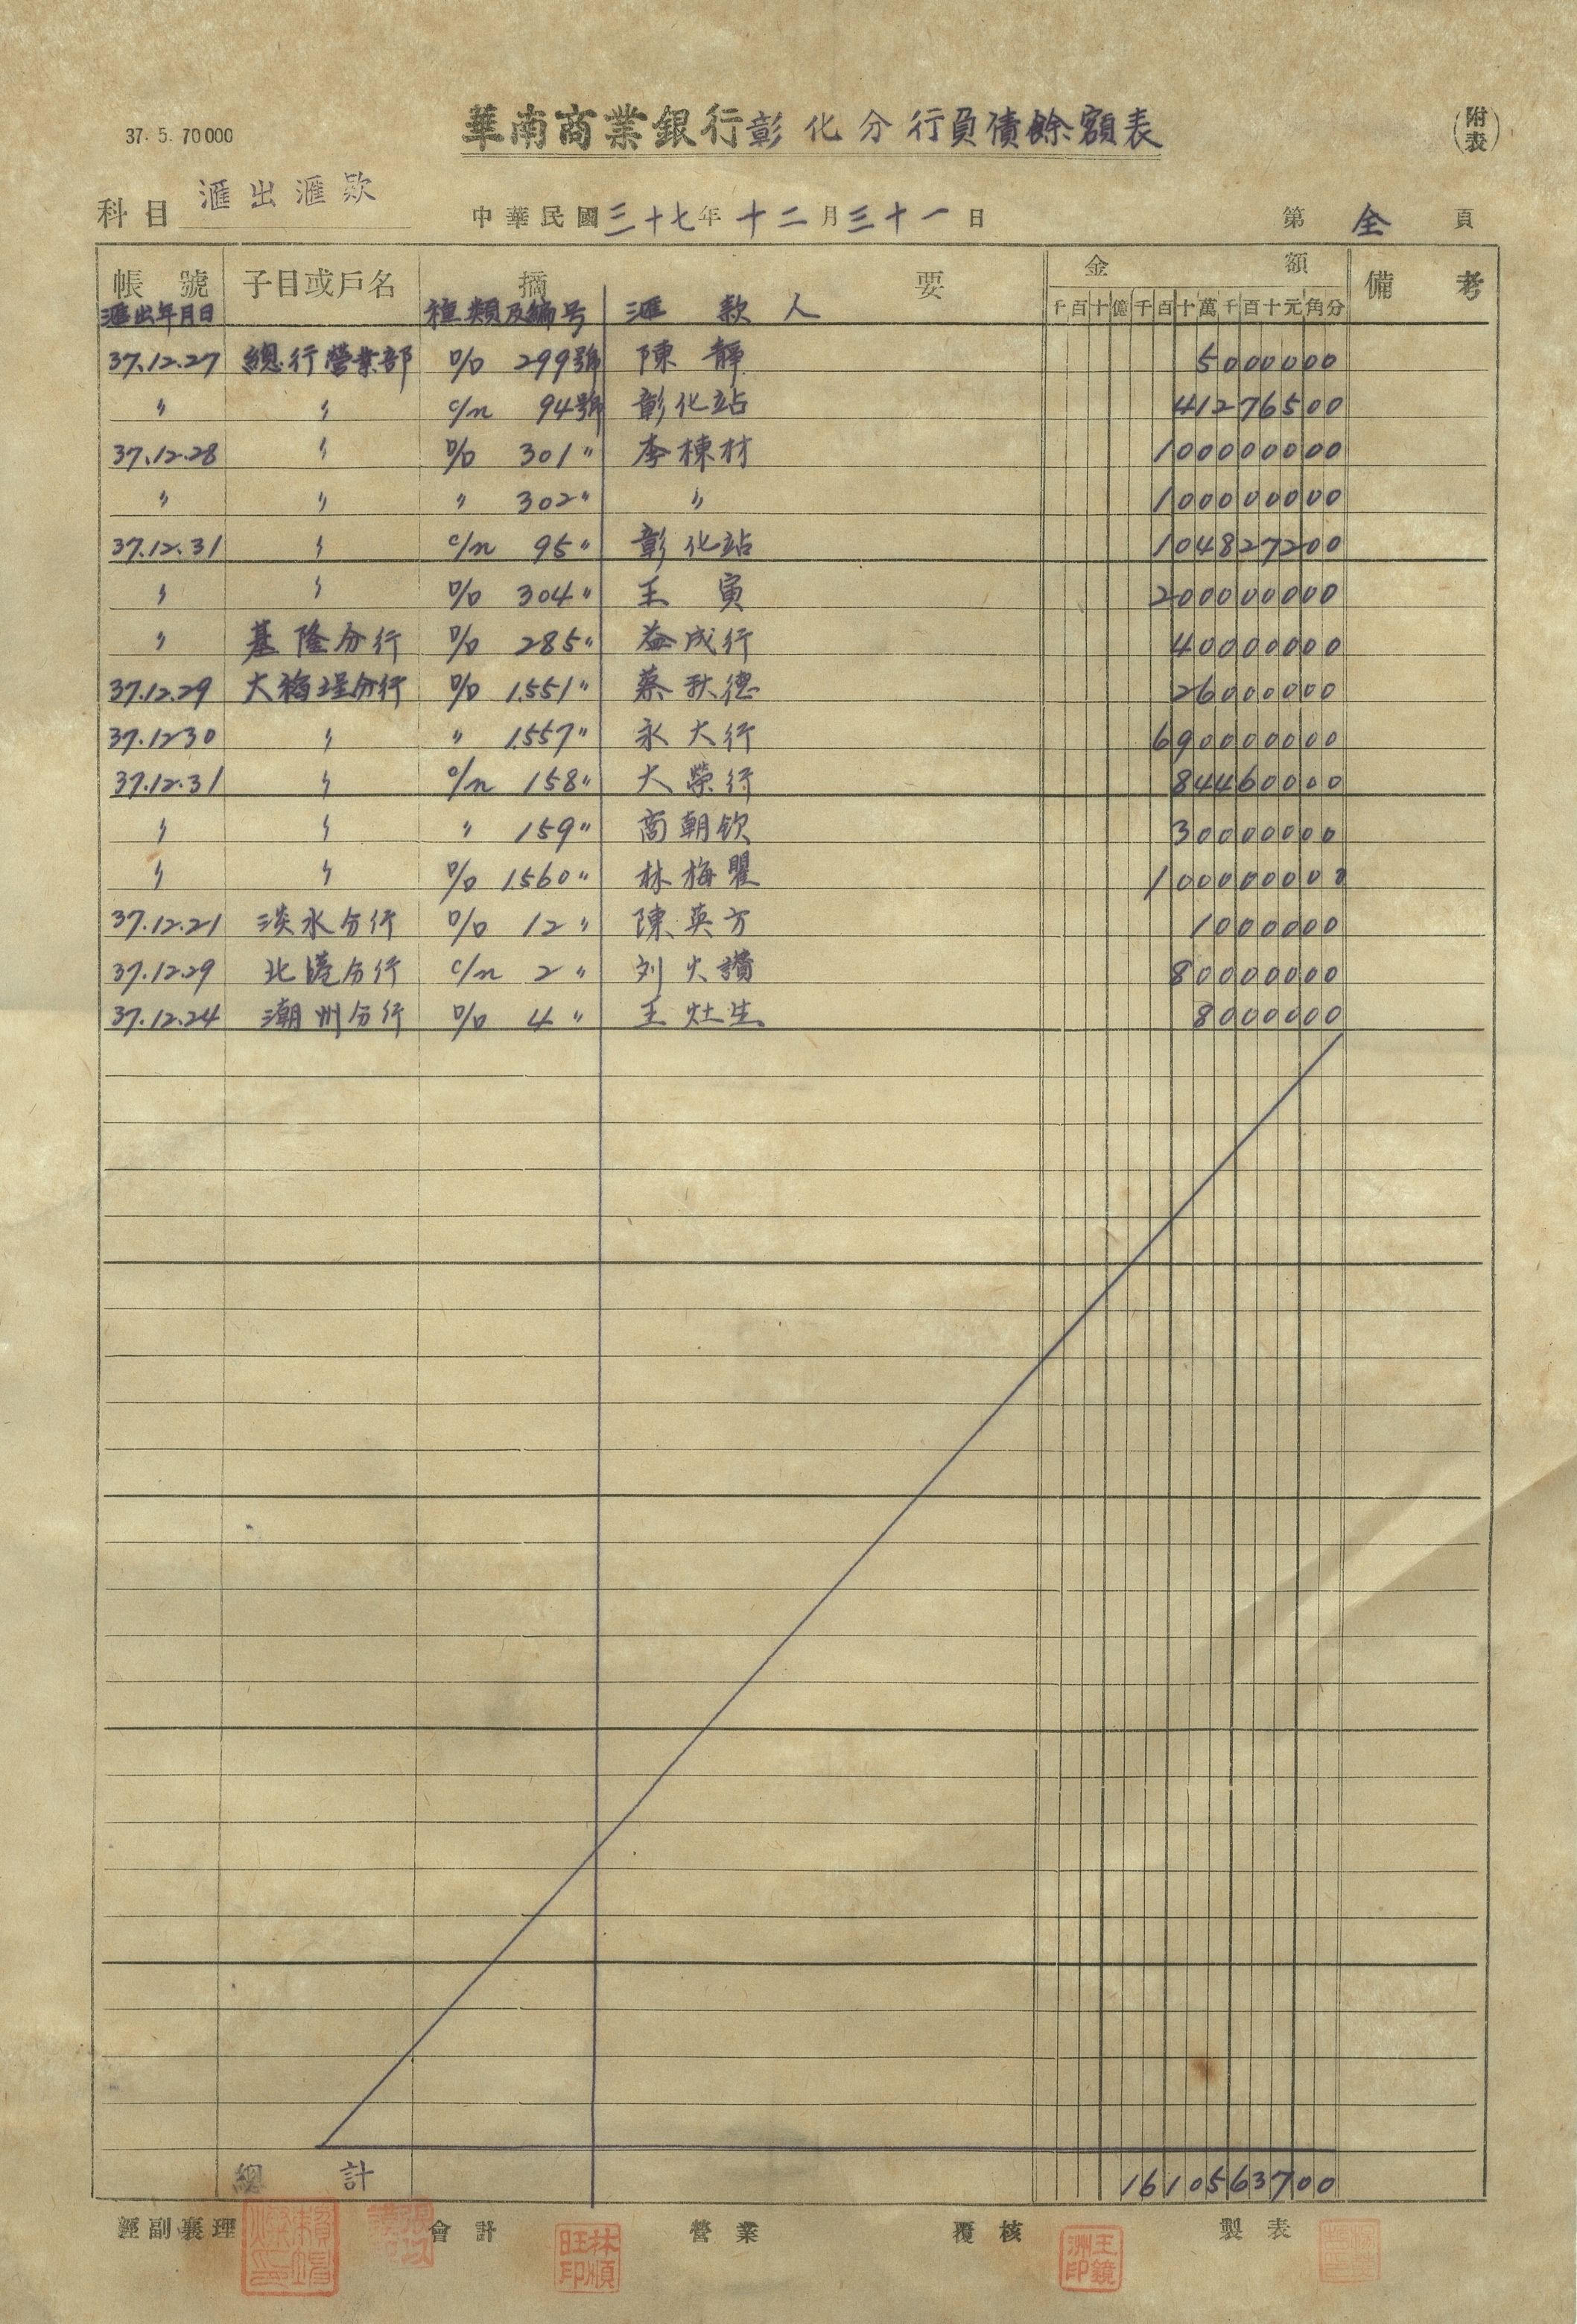 37. 5. 70000
華南商業銀行彰化分行負債餘額表
(附表)
科目 滙出滙款 中華民國三十七年十二月三十一日 第全頁
帳號 子目或戶名 摘要 金額 備考
滙出年月日 種類及編号 滙款人 千百十億千百十萬千百十元角分
37.12.27 總行營業部 D/D 299號 陳靜 5000000
〃 〃 c/n 94號 彰化站 41276500
37.12.28 〃 D/D 301〃 李棟材 100000000
〃 〃 〃 302〃 〃 100000000
37.12.31 〃 c/n 95〃 彰化站 104827200
〃 〃 D/D 304〃 王寅 200000000
〃 基隆分行 D/D 285〃 益成行 40000000
37.12.29 大稻埕分行 D/D 1.551〃 蔡秋德 26000000
37.12 30 〃 〃 1.557〃 永大行 690000000
37.12.31 〃 c/n 158〃 大榮行 84460000
〃 〃 〃 159〃 商朝欽 30000000
〃 〃 D/D 1.560〃 林梅 100000000
37.12.21 淡水分行 D/D 12〃 陳英方 1000000
37.12.29 北港分行 c/n 2〃 刘火讚 80000000
37.12.24 潮州分行 D/D 4〃 王灶生 8000000
總計 1610563700
經副襄理 會計 營業 覆核 製表
林順旺印
王鏡洲印